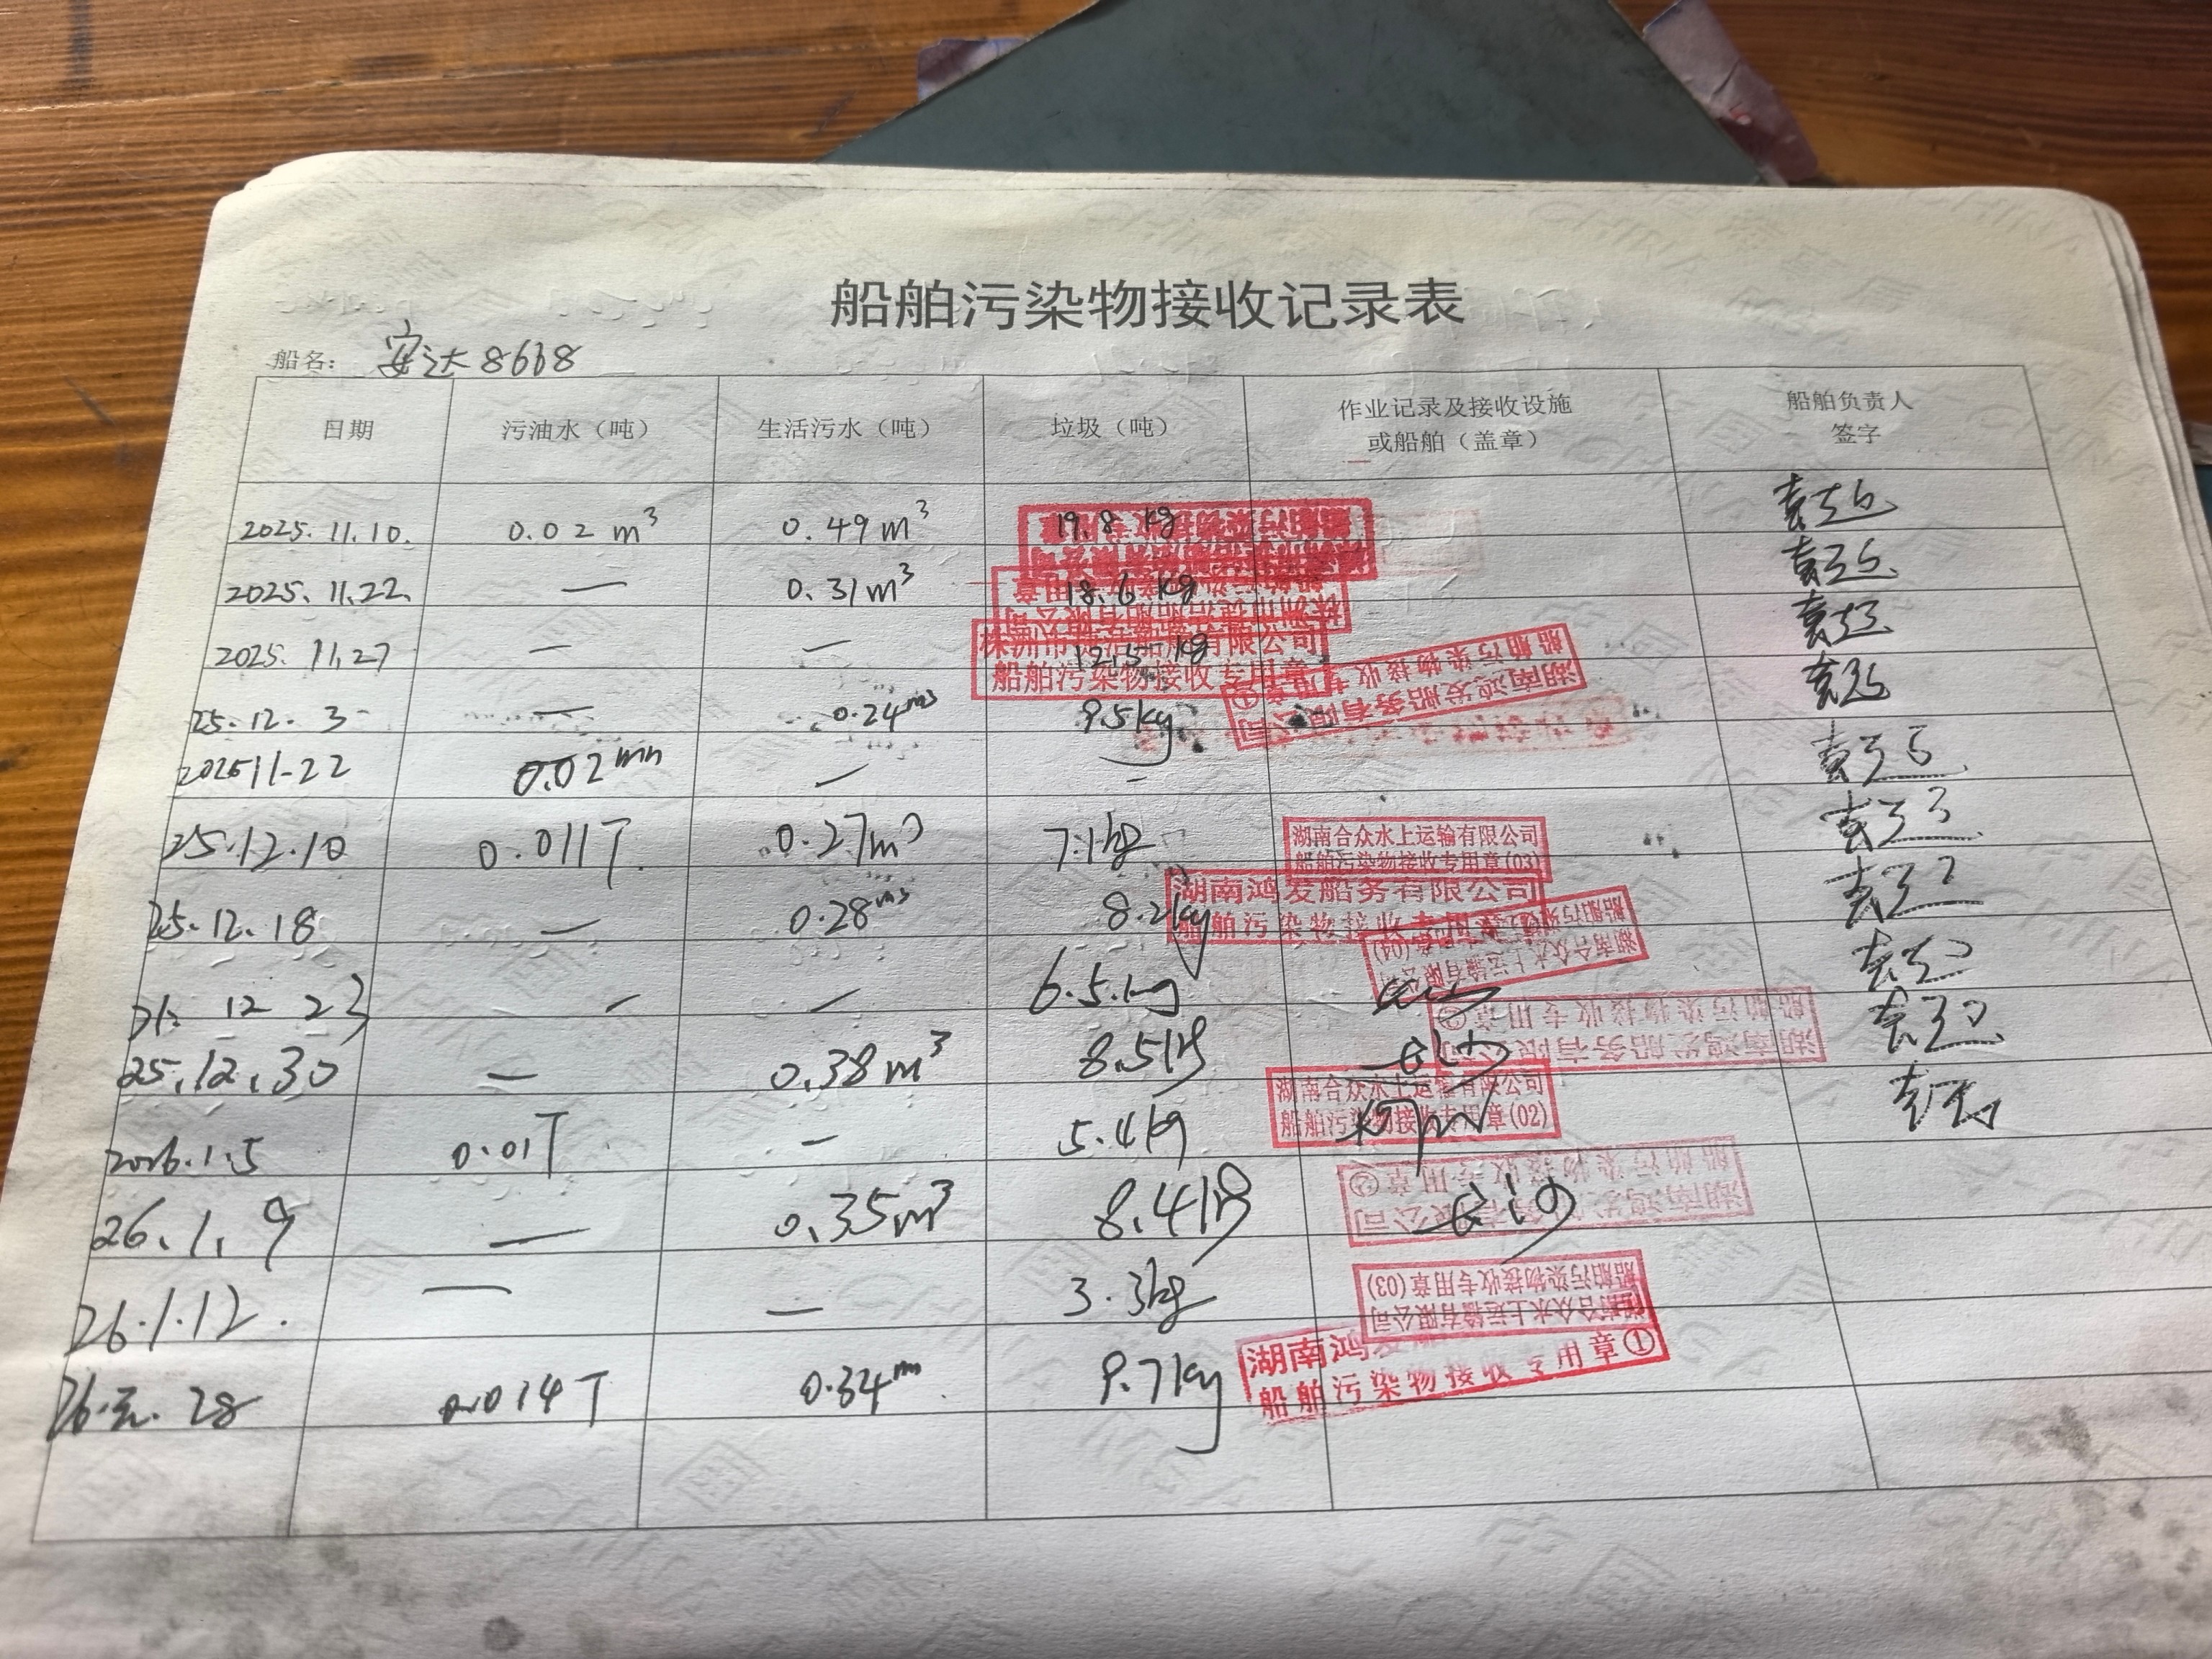 船舶污染物接收记录表
船名： 安达8668
日期 污油水（吨） 生活污水（吨） 垃圾（吨） 作业记录及接收设施或船舶（盖章） 船舶负责人签字
2025.11.10. 0.02 m³ 0.49 m³ 19.8 kg
2025.11.22. — 0.31 m³ 18.6 kg
2025.11.27 — — 12.5 kg
株洲市 船舶有限公司
船舶污染物接收专用章
25.12.3 — 0.24 m³ 9.5kg
湖南鸿发船务有限公司
船舶污染物接收专用章①
2025 11-22 0.02 — -
25.12.10 0.011T 0.27m³ 7.1kg
湖南合众水上运输有限公司
船舶污染物接收专用章(03)
25.12.18 — 0.28m³ 8.2kg
湖南鸿发船务有限公司
船舶污染物接收专用章
湖南合众水上运输有限公司
船舶污染物接收专用章(04)
12 23 — — 6.5kg
湖南鸿发船务有限公司
船舶污染物接收专用章②
25.12.30 — 0.38m³ 8.5kg 长沙
湖南合众水上运输有限公司
船舶污染物接收专用章(02)
2026.1.5 0.01T — 5.4kg
湖南鸿发船务有限公司
船舶污染物接收专用章②
26.1.9 — 0.35m³ 8.4kg 长沙
26.1.12. — — 3.3kg
湖南合众水上运输有限公司
船舶污染物接收专用章(03)
26.元.28 0.014T 0.34 9.7kg
湖南鸿发
船舶污染物接收专用章①